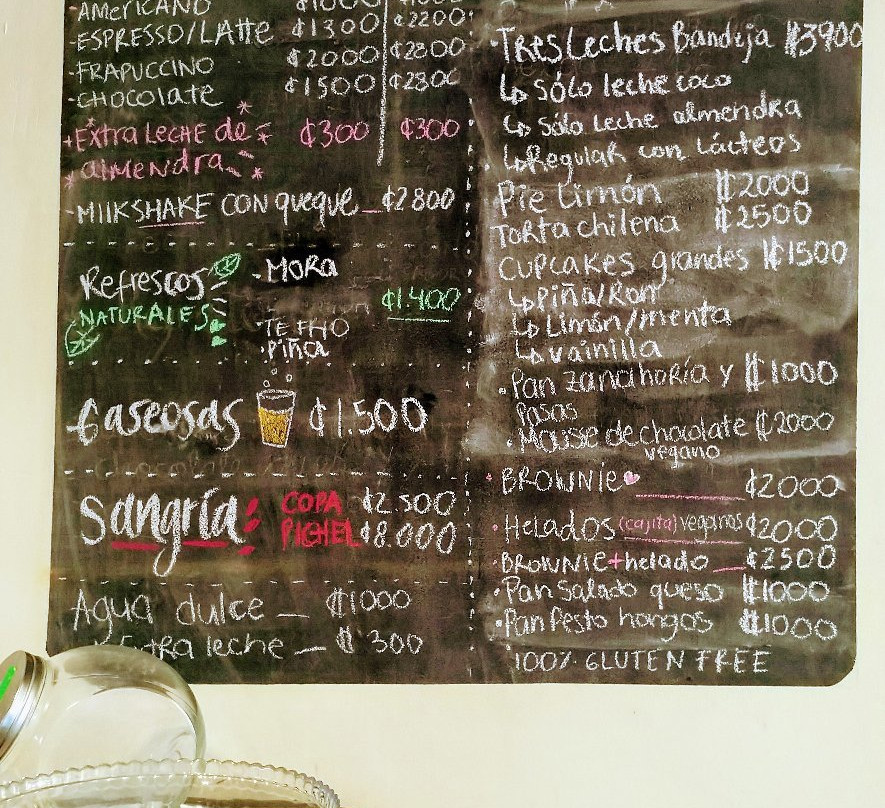 -AMERICANO ₡1000 ₡1800
-ESPRESSO/LATTE ₡1300 ₡2200
-FRAPUCCINO ₡2000 ₡2800
-CHOCOLATE ₡1500 ₡2300
+EXTRA LECHE de ₡300 ₡300
almendra
-MIlKSHAKE CON queque ₡2800
Refrescos
NATURALES
-MORA
₡1.400
·TE FRIO
·Piña
Gaseosas ₡1.500
Sangría COPA ₡2.500
PICHEL ₡8.000
Agua dulce — ₡1000
Extra leche — ₡ 300
·Tres Leches Bandeja ₡3900
↳ Sólo leche coco
↳ Sólo leche almendra
↳Regular con Lácteos
Pie Limón ₡2000
Torta chilena ₡2500
CUPCAKES grandes ₡1500
↳Piña/Ron
↳Limón/menta
↳vainilla
·Pan zanahoría y ₡1000
Pasas
·Mousse de chocolate ₡2000
vegano
·BROWNIE ₡2000
·Helados (cajita) veganos ₡2000
·BROWNIE+helado ₡2500
·Pan Salado queso ₡1000
·Pan Pesto hongos ₡1000
100% GLUTEN FREE